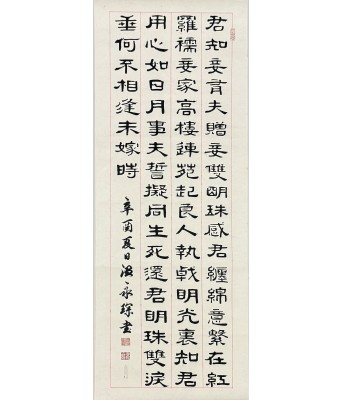 君知妾有夫贈妾雙明珠感君纏綿意繫在紅
羅襦妾家高樓連苑起良人執戟明光裏知君
用心如日月事夫誓擬同生死還君明珠雙淚
垂何不相逢未嫁時
辛酉夏日永書